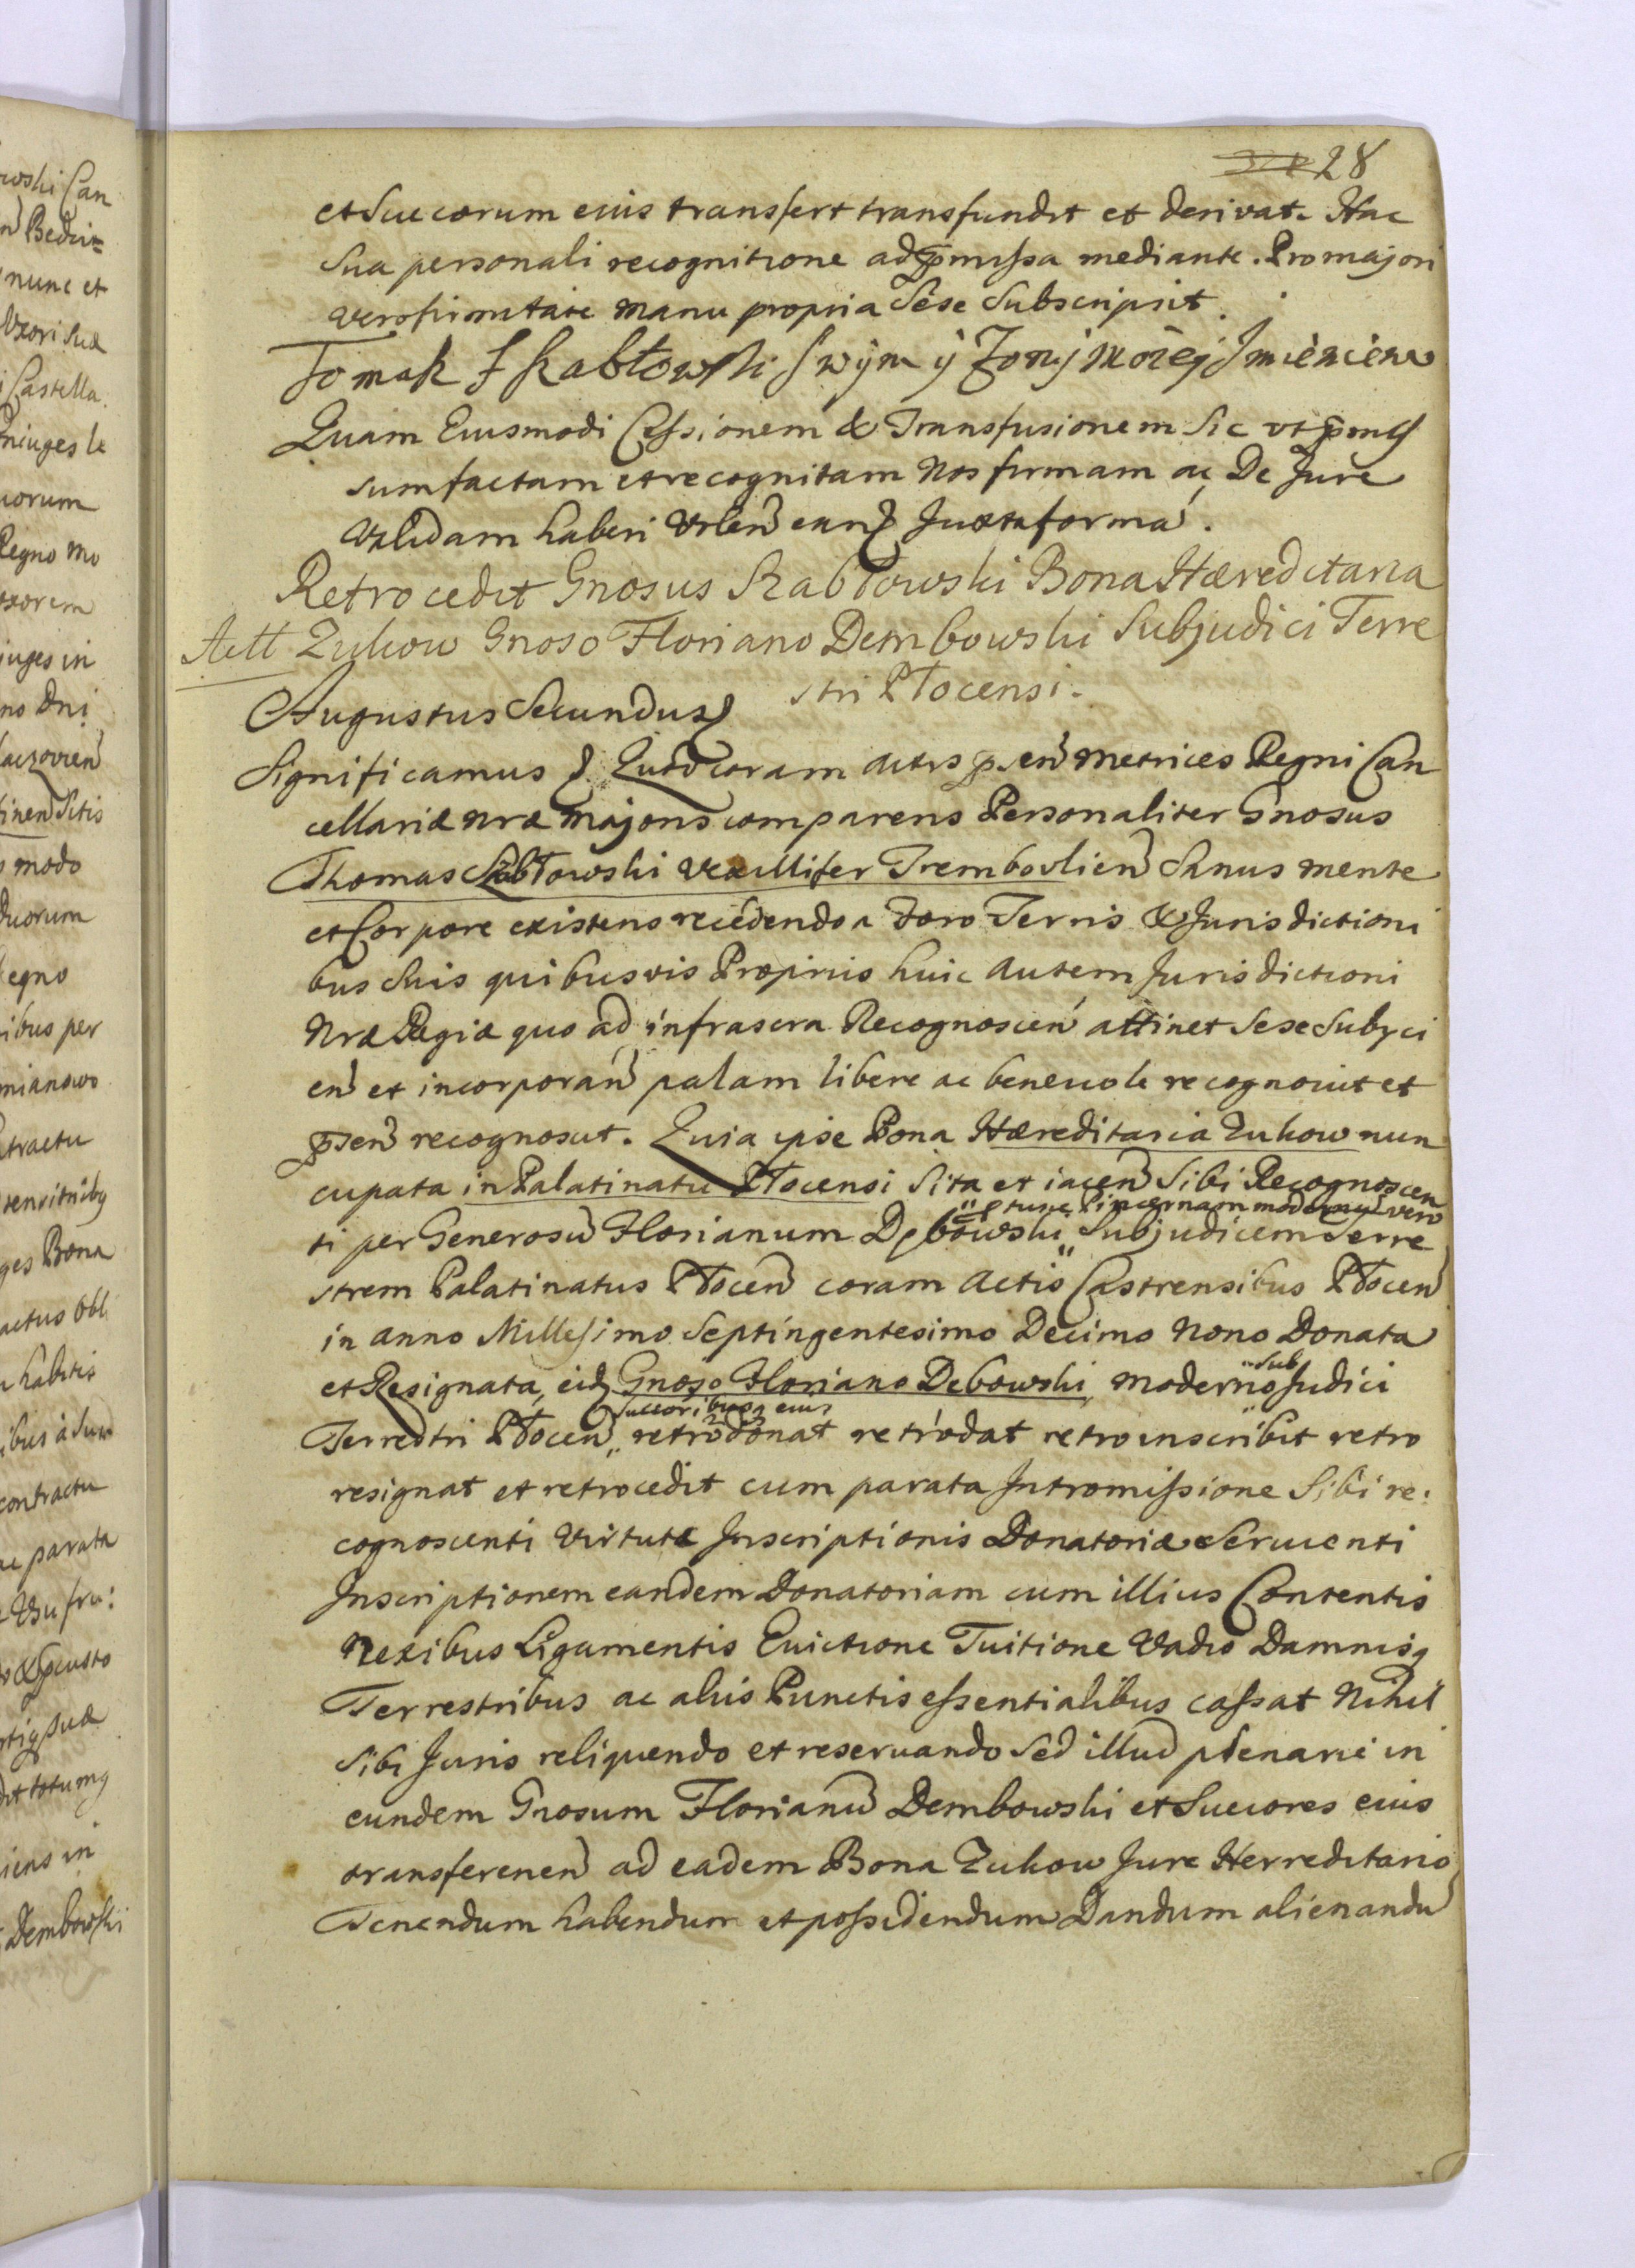 28
et Succorum eius transfert transfundit et derivat. Hac
Sua personali recognitione ad p̄missa mediante. Pro majori
verosimitate manu propria Sese Subscripsit.
Tomasz Szkabłowski swym y Zony moiej Jmieniem
Quam Eiusmodi Cessionem & Transfusionem Sic ut p̄miss
sum factam et recognitam Nos firmam ac De Jure
Validam haberi Volen̄ Juxta formā.
Retrocedit Gnosus Szkabłowski Bona Hæreditaria
Zukow Gnoso Floriano Dembowski Subjudici Terre
stri Płocensi.
Augustus Secundus
Significamus Quod coram actis p̄sen̄ Metrices Regni Can
cellariæ nræ Majoris comparens Personaliter Gnosus
Thomas Szkabłowski Vexillifer Trembovlien̄ Sanus mente
et Corpore existens recedendo a Foro Terris & Jurisdictioni
bus Suis quibusvis Proprijs huic autem Jurisdictioni
Nræ Regiæ quo ad infrascra Recognoscen̄ attinet Sese Subyci
en̄ et incorporan̄ palam libere ac beneuole recognouit et
p̄sen̄ recognoscit. Quia ipse Bona Hæreditaria Zukow nun
cupata in Palatinatu Płocensi Sita et iacen̄ Sibi Recognoscen
tunc Pincernam modernū vero
ti per Generosū Florianum Dębowski Subjudicem Terre
strem Palatinatus Płocen̄ coram Actis Castrensibus Płocen̄
in anno Millesimo Septingentesimo Decimo Nono Donata
et Resignata, eidq Gnoso Floriano Debowski moderno Subjudici
Succoribusq eius
Terrestri Płocen̄ retrodonat retrodat retroinscribit retro
resignat et retrocedit cum parata Intromissione Sibi re:
cognoscenti Virtute Inscriptionis Donatoriæ Seruienti
Inscriptionem eandem Donatoriam cum illius Contentis
Nexibus Ligamentis Euictione Tuitione Vadio Damnisq
Terrestribus ac alijs Punctis essentialibus cassat Nihil
Sibi Juris reliquendo et reseruando Sed illud plenarie in
eundem Gnosum Florianū Dembowski et Succores eius
transferenen̄ ad eadem Bona Zukow Jure Herreditario
Tenendum habendum et possidendum Dandum alienandū